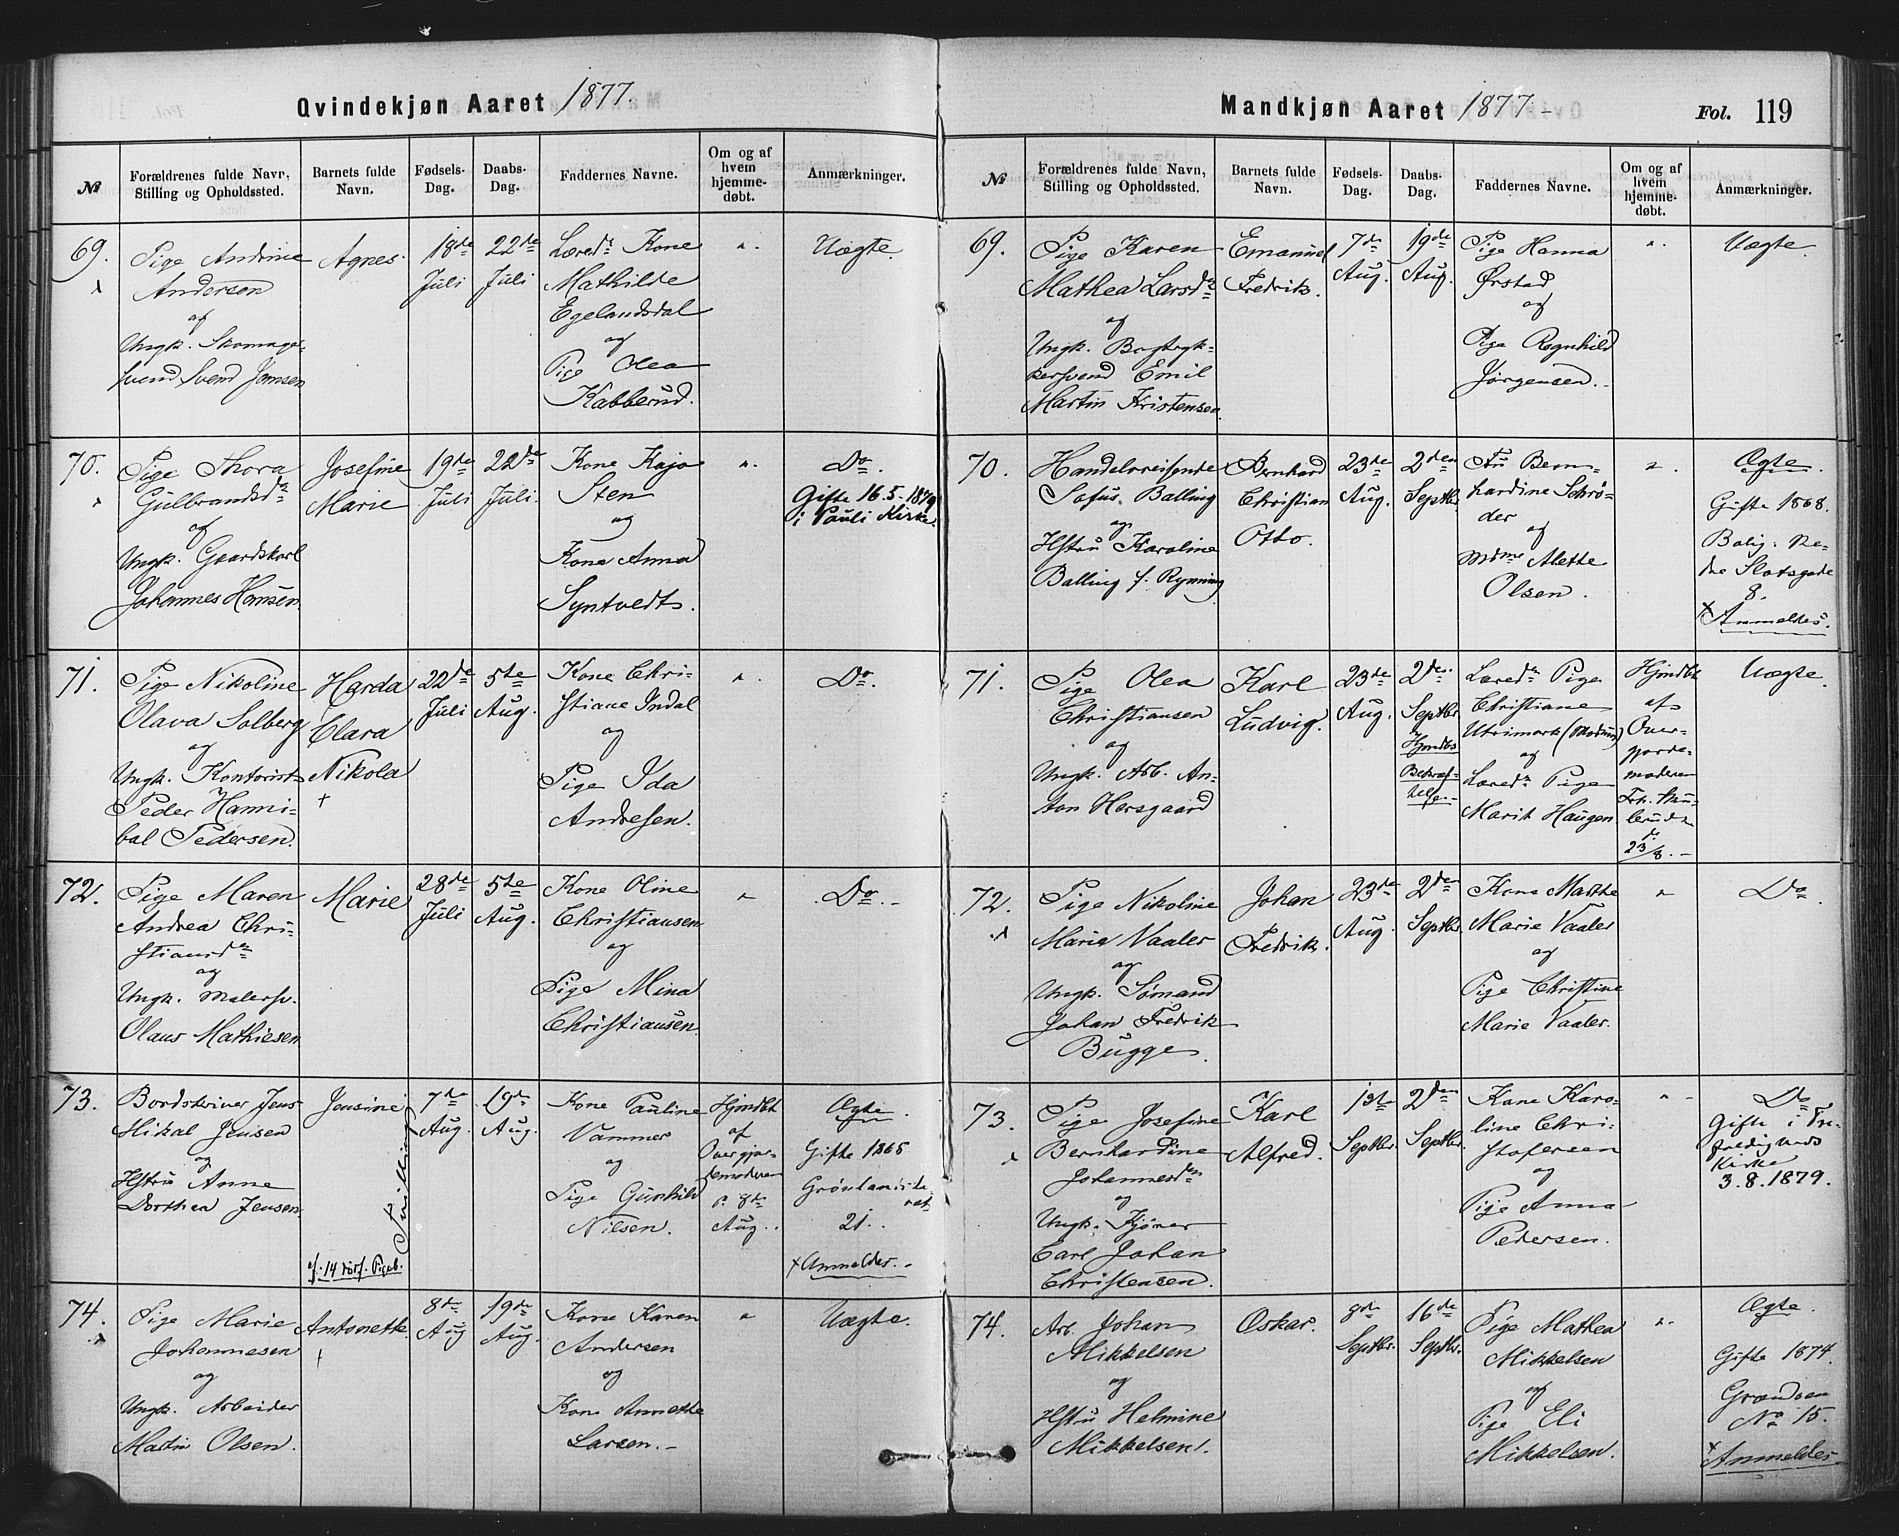 Qvindekjøn Aaret 1877.
№
Forældrenes fulde Navn,
Stilling og Opholdssted.
Barnets fulde
Navn.
Fødsels-
Dag.
Daabs-
Dag.
Faddernes Navne.
Om og af
hvem
hjemme-
døbt.
Anmærkninger.
69.
Pige Andrine
Andersen
af
Ungk. Skomager-
svend Svend Jensen
Agnes.
18de
Juli
22de
Juli
Kone
Mathilde
Egelandsdal
og
Pige Olea
Kabberud.
"
Uægte.
70.
Pige Thora
Gulbrandsdr
af
Ungk. Gaardskarl
Johannes Hansen.
Josefine
Marie
19de
Juli
22de
Juli.
Kone Kaja
Sten
og
Kone Anna
Syntvedt.
"
Do.
Gifte 16.5.1879
i Pauli Kirke.
71.
Pige Nikoline
Olava Solberg
og
Ungk. Kontorist
Peder Hanni-
bal Pedersen.
Harda
Clara
Nikola
+
22de
Juli
5te
Aug.
Kone Chri-
stiane Indal
og
Pige Ida
Andresen.
"
Do.
72.
Pige Maren
Andrea Chri-
stiansdr
og
Ungk. Malersv.
Olaus Mathiesen
Marie
28de
Juli
5te
Aug.
Kone Oline
Christiansen
og
Pige Mina
Christiansen.
"
Do. -
73.
Bordskriver Jens
Mikal Jensen
og
Hstru Anne
Dorthea Jensen.
Jensine
Tvilling
cf. 14 Pigeb.
7de
Aug.
19de
Aug.
Kone Pauline
Vammer
og
Pige Gunhild
Nilsen.
Hjmdbt
af
Overgjor-
demoderen
d. 8de
Aug.
Ægte.
Gifte 1865
21.
× Anmeldes. -
74.
Pige Marie
Johannesen
og
Ungk. Arbeider
Martin Olsen.
Antonette
+
8de
Aug
19de
Aug.
Kone Karen
Andersen
og
Kone Annette
Larsen. -
"
Uægte.
Mandkjøn Aaret 1877 -
Fol. 119
№
Forældrenes fulde Navn,
Stilling og Opholdssted.
Barnets fulde
Navn.
Fødsels-
Dag.
Daabs-
Dag.
Faddernes Navne.
Om og af
hvem
hjemme-
døbt.
Anmærkninger.
69.
Pige Karen
Mathea Larsdr
af
Ungk. Bogtryk-
kersvend Emil
Martin Kristensen.
Emanuel
Fredrik.
7de
Aug.
19de
Aug.
Pige Hanna
Ørstad
og
Pige Ragnhild
Jørgensen.
"
Uægte.
70.
Handelsreisende
Sofus Balling
og
Hstru Karoline
Balling f. Rynning
Bernhard
Christian
Otto.
23de
Aug.
2den
Septbr.
Fru Bern-
hardine Schrø-
der
og
Mdme Alette
Olsen.
"
Ægte.
Gifte 1868.
Bolig: Ne-
dre Slotsgade
8.
× Anmeldes.
71.
Pige Olea
Christiansen
og
Ungk. Arb. An-
ton Hersgaard
Karl
Ludvig.
23de
Aug.
2den
Septbr.
Hjmdbs
Bekræf-
telse. -
Pige
Christiane
Utrimark (Modum)
og
Pige
Marit Haugen
Hjmdbt
af
Over-
gjorde-
moderen
d.
23/8. -
Uægte.
72.
Pige Nikoline
Maria Vaaler
og
Ungk. Sømand
Johan Fredrik
Bugge.
Johan
Fredrik.
23de
Aug.
2den
Septbr.
Kone Marthe
Marie Vaaler
og
Pige Christine
Marie Vaaler.
"
Do.
73.
Pige Josefine
Bernhardine
Johannesdr
og
Ungk. Kjører
Carl Johan
Christensen.
Karl
Alfred.
1ste
Septbr.
2den
Septbr.
Kone Karo-
line Chri-
stofersen
og
Pige Anna
Pedersen.
"
Do
Gifte i Tre-
foldigheds
Kirke
3.8.1879.
74.
Arb. Johan
Mikkelsen
og
Hstru Helmine
Mikkelsen.
Oskar.
8de
Septbr.
16de
Septbr.
Pige Mathea
Mikkelsen
og
Pige Eli
Mikkelsen.
"
Ægte.
Gifte 1874.
Grændsen
No 15.
× Anmeldes.